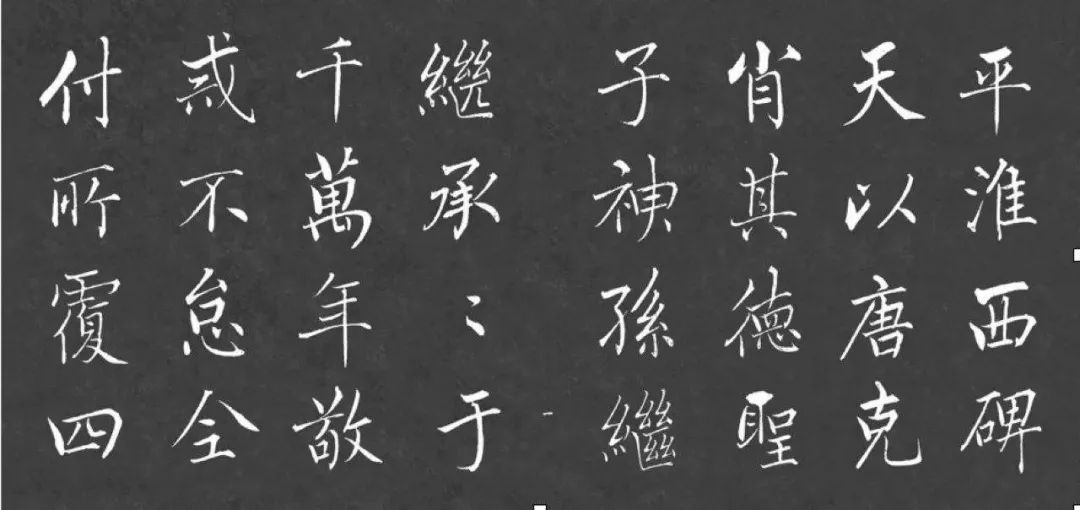 平淮西碑
天以唐克
肖其德聖
子神孫繼
繼承〻于
千萬年敬
戒不怠全
付所覆四